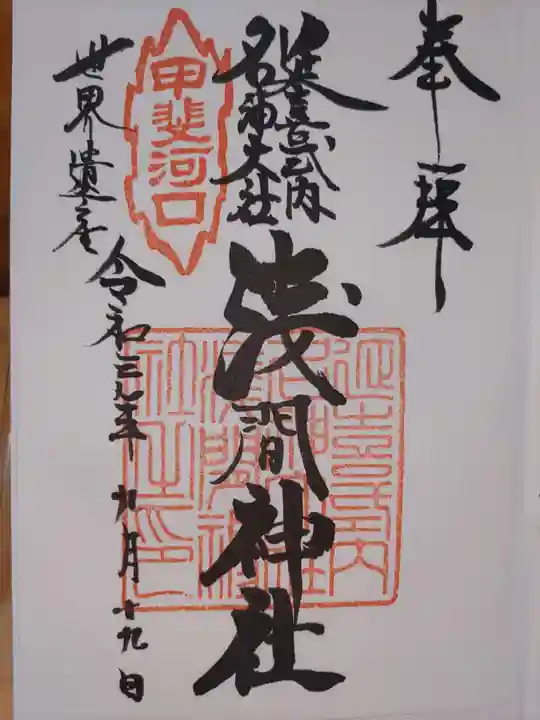 奉拝
延喜式内
名神大社
浅間神社
甲斐河口
世界遺産
令和元年九月十九日
延喜式内